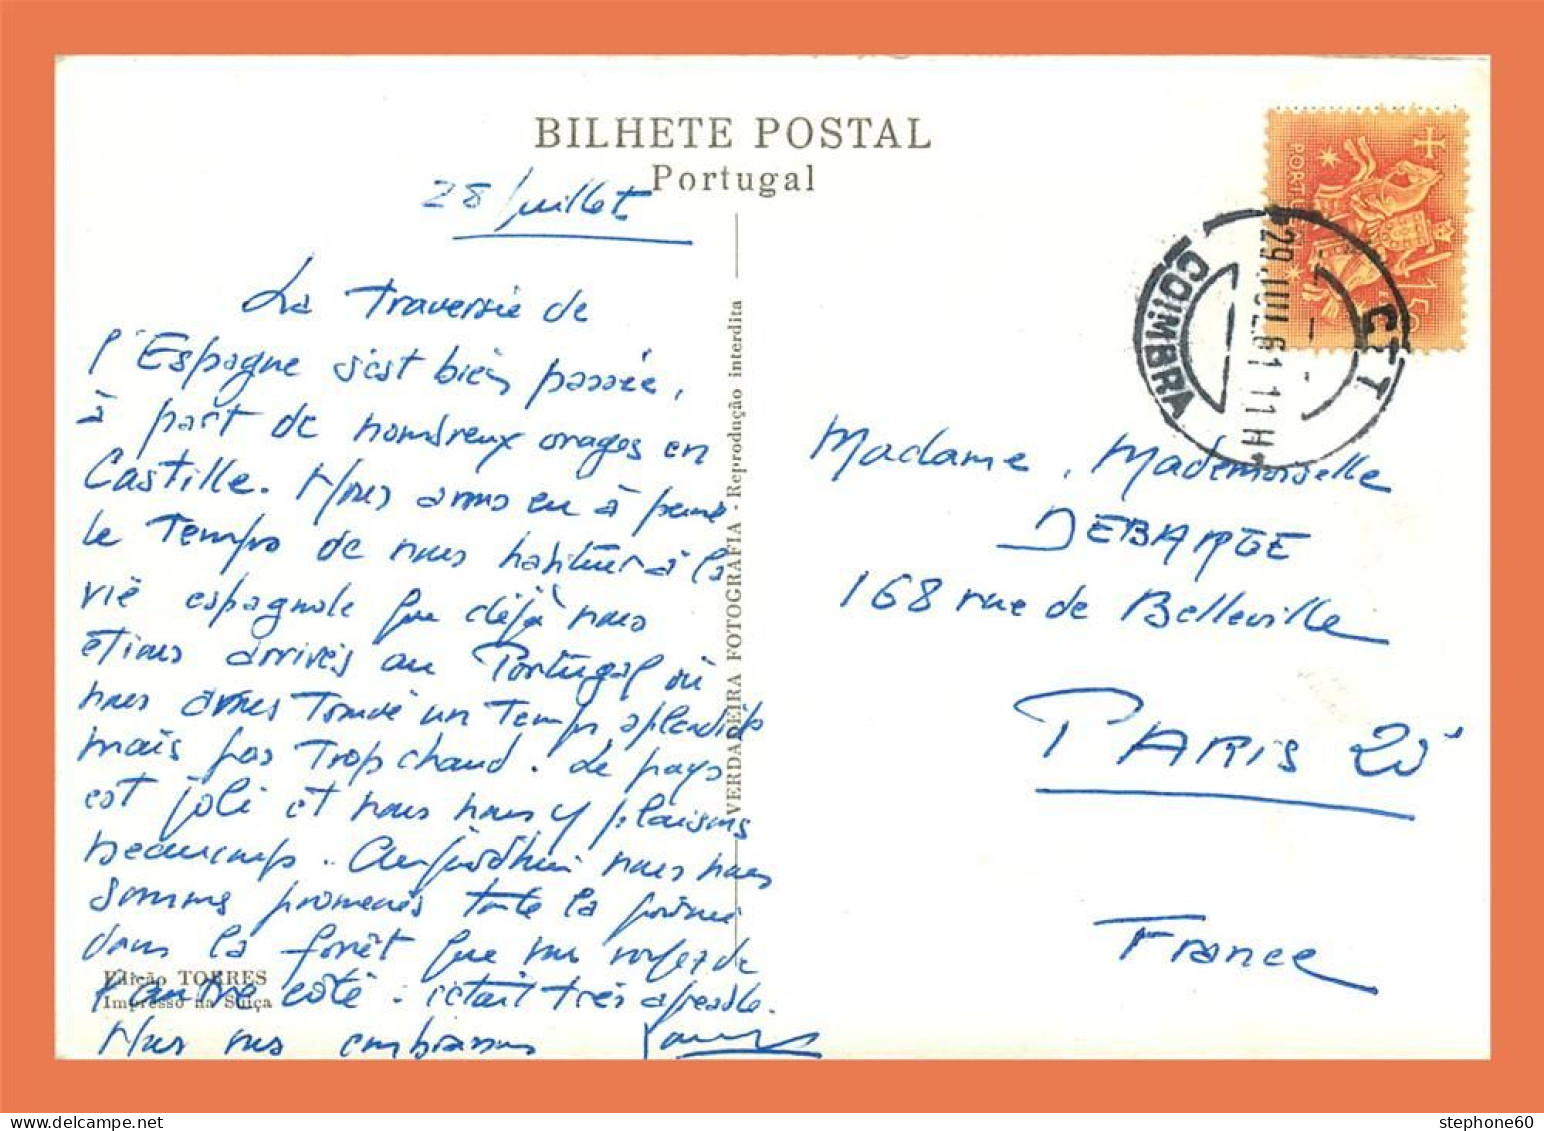 BILHETE POSTAL
Portugal
28 Juillet
La Traversée de
l'Espagne s'est bien passée,
à part de nombreux orages en
Castille. Nous avons eu à peine
le temps de nous habituer à la
vie espagnole que déjà nous
étions arrivés au Portugal où
nous avons trouvé un temps splendide
mais pas trop chaud. Le pays
est joli et nous nous y plaisons
beaucoup. Aujourd'hui nous nous
sommes promenés toute la journée
dans la forêt que vous voyez de
l'autre côté. C'était très agréable.
Nous vous embrassons
Edição TORRES
Impresso na Suíça
VERDADEIRA FOTOGRAFIA - Reprodução interdita
PORTUGAL
1$50
CTT
29.JUL.61 11H
COIMBRA
Madame, Mademoiselle
DEBARGE
168 rue de Belleville
PARIS 20e
France
stephone60